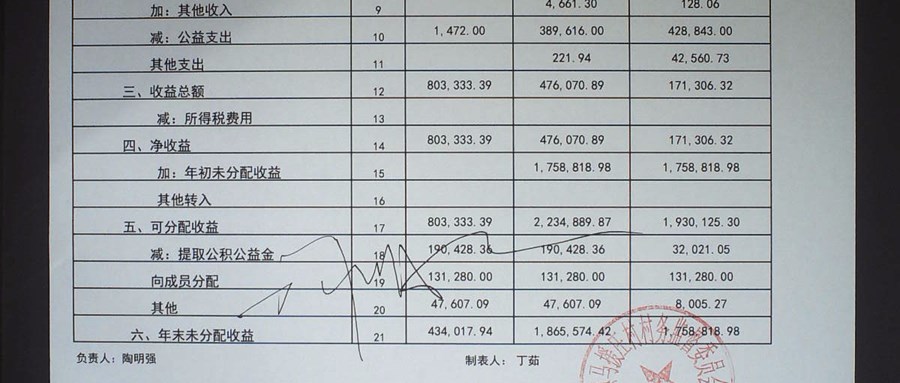 加：其他收入 9 4,661.30 128.06
减：公益支出 10 1,472.00 389,616.00 428,843.00
其他支出 11 221.94 42,560.73
三、收益总额 12 803,333.39 476,070.89 171,306.32
减：所得税费用 13
四、净收益 14 803,333.39 476,070.89 171,306.32
加：年初未分配收益 15 1,758,818.98 1,758,818.98
其他转入 16
五、可分配收益 17 803,333.39 2,234,889.87 1,930,125.30
减：提取公积公益金 18 190,428.36 190,428.36 32,021.05
向成员分配 19 131,280.00 131,280.00 131,280.00
其他 20 47,607.09 47,607.09 8,005.27
六、年末未分配收益 21 434,017.94 1,865,574.42 1,758,818.98
负责人：陶明强 制表人：丁茹
村村务监督委员会